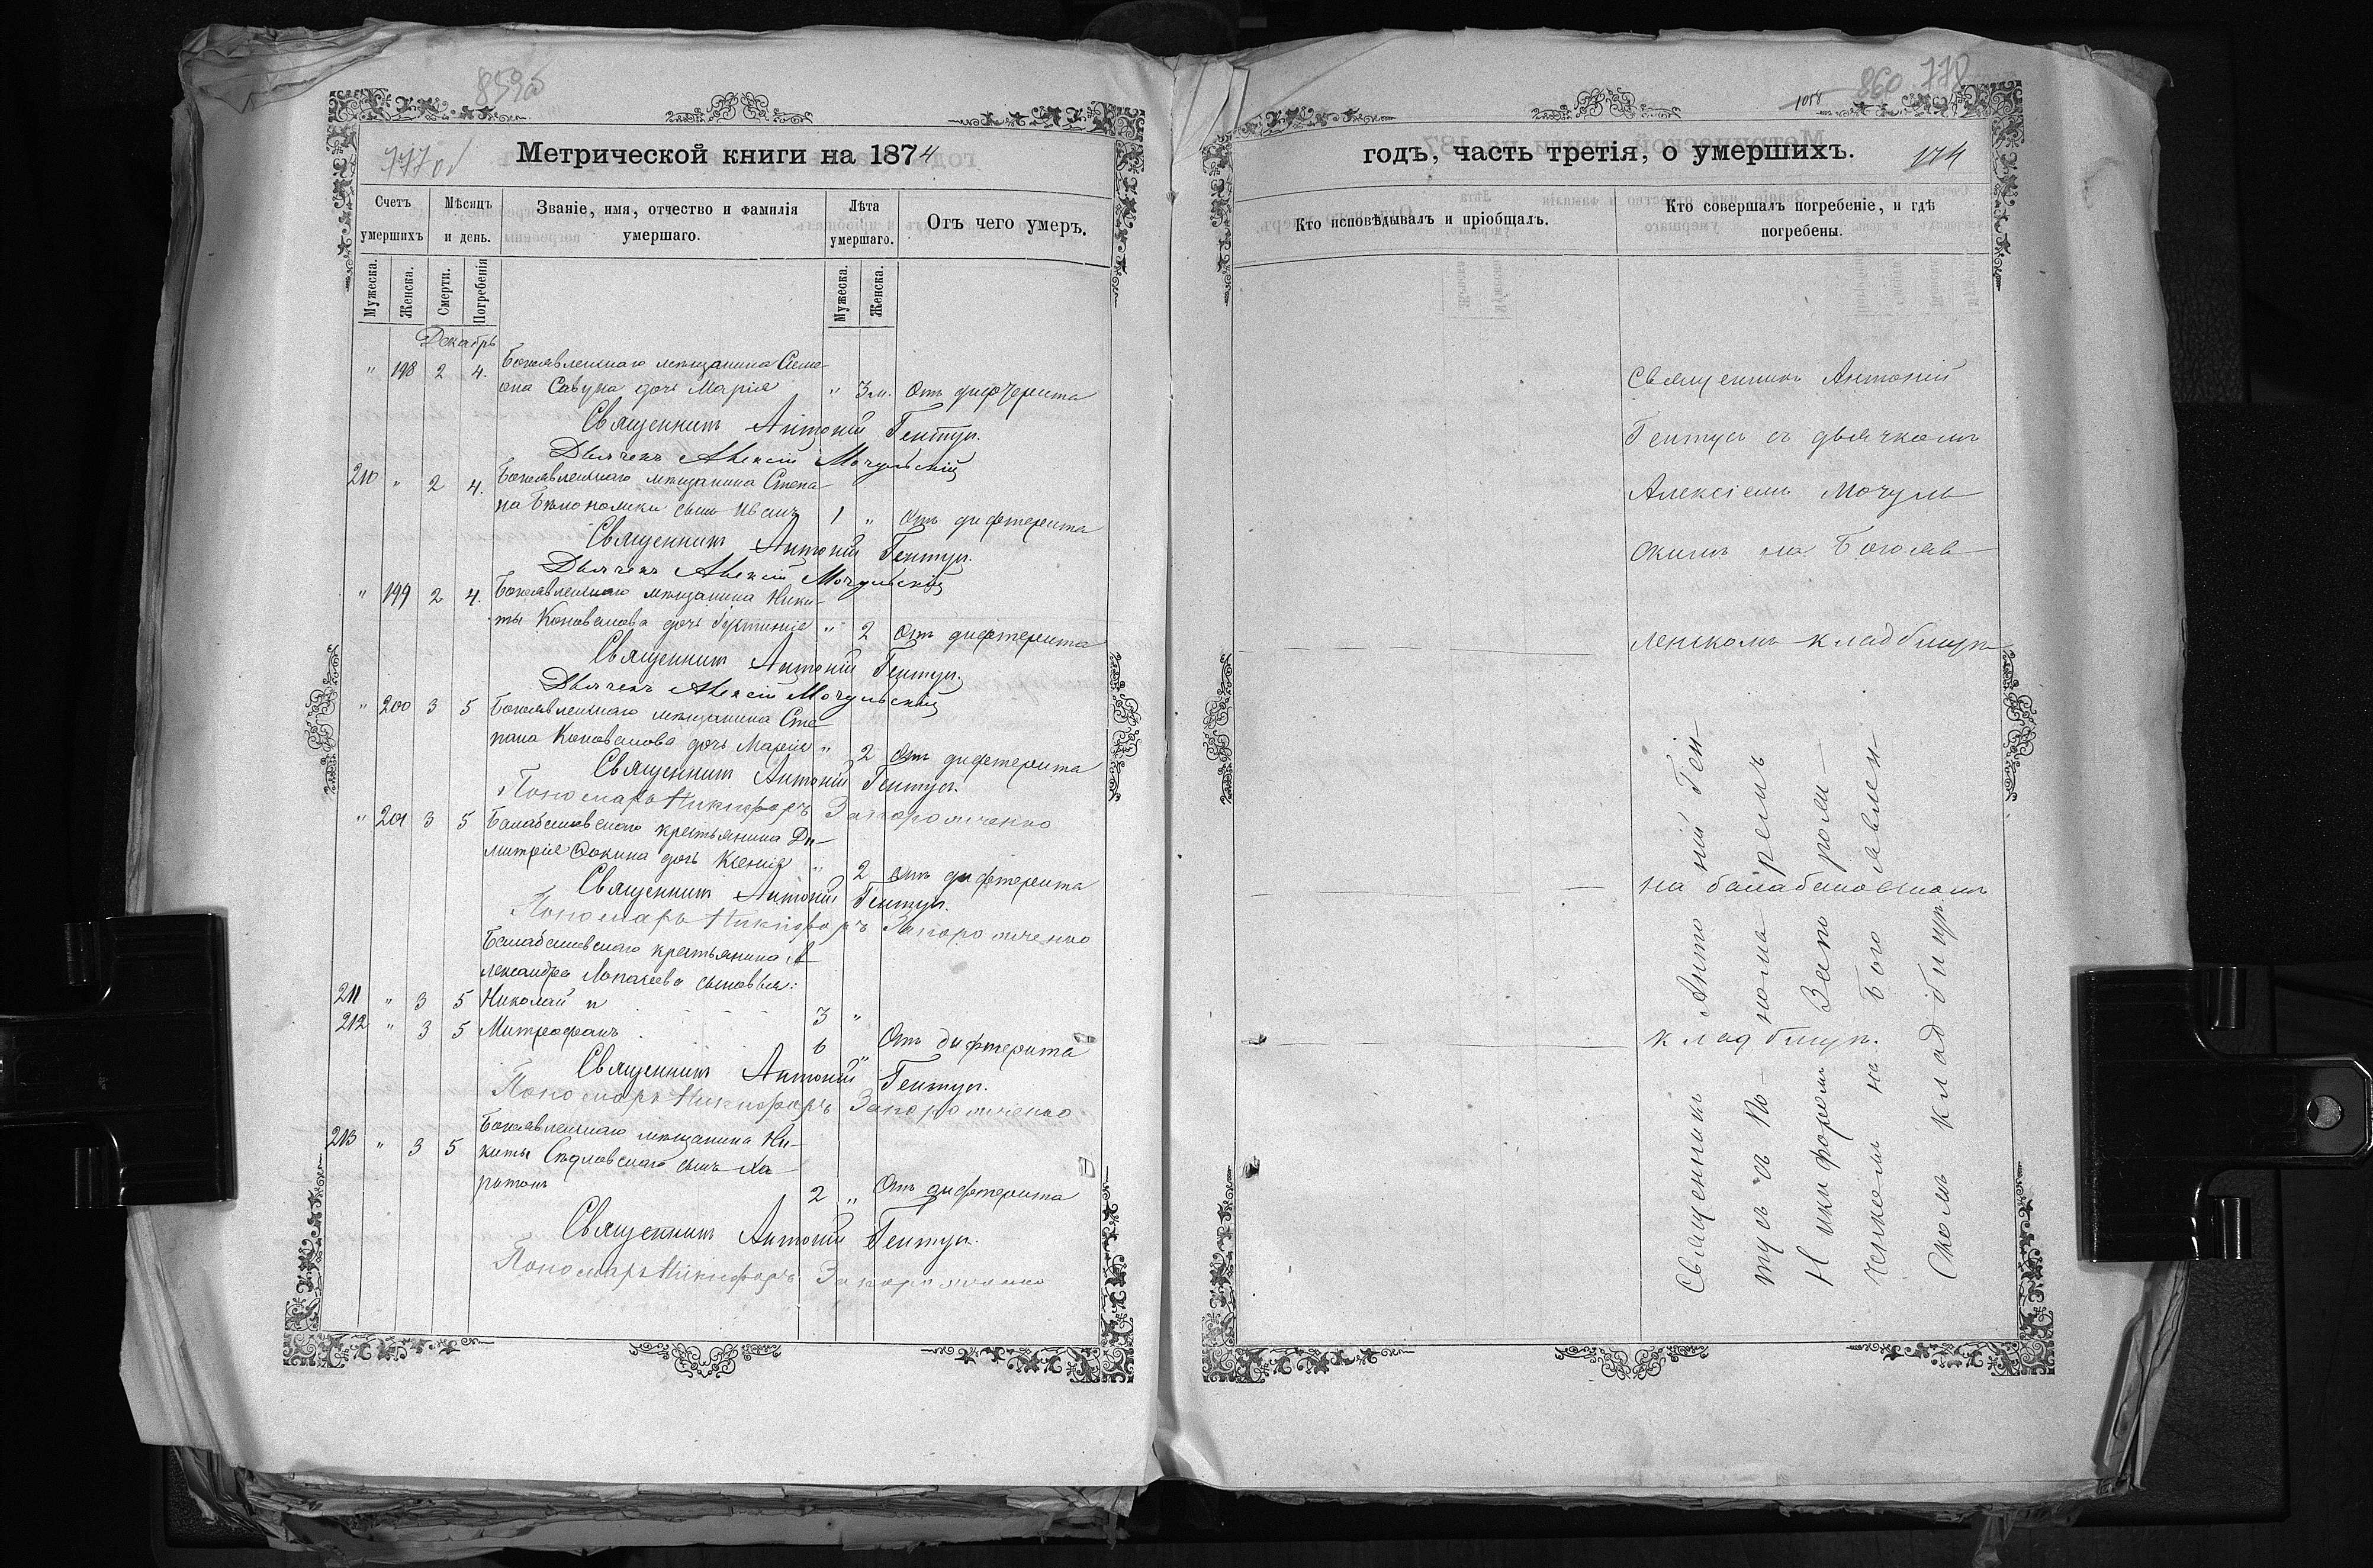 859об
777об
Метрической книги на 1874
Счетъ умершихъ
Мѣсяцъ и день.
Званіе, имя, отчество и фамилія умершаго.
Лѣта умершаго.
Отъ чего умеръ.
Мужеска.
Женска.
Смерти.
Погребенія
Мужеска.
Женска.
Декабрь
" 198 2 4. Богоявленскаго мѣщанина Симе-
она Савука дочь Марія " 3 м. Отъ дифтерита
Священникъ Антоній Гентушъ.
Дьячекъ Алексій Мочульскій
210 " 2 4. Богоявленскаго мѣщанина Степа-
на сынъ Иванъ 1 " Отъ дифтерита
Священникъ Антоній Гентушъ.
Дьячекъ Алексій Мочульскій
" 199 2 4. Богоявленскаго мѣщанина Ники-
ты Коновалова дочь " 2 Отъ дифтерита
Священникъ Антоній Гентушъ.
Дьячекъ Алексій Мочульскій
" 200 3 5 Богоявленскаго мѣщанина Сте-
пана Коновалова дочь Марія " 2 Отъ дифтерита
Священникъ Антоній Гентушъ.
Пономарь Никифоръ Запороженко
" 201 3 5 Балабановскаго крестьянина Ди-
митрія дочь Ксенія " 2 Отъ дифтерита
Священникъ Антоній Гентушъ.
Пономарь Никифоръ Запороженко
Балабановскаго крестьянина А-
лександра сыновья:
211 " 3 5 Николай и 3 "
212 " 3 5 Митрофанъ 6 " Отъ дифтерита
Священникъ Антоній Гентушъ.
Пономарь Никифоръ Запороженко
213 " 3 5 Богоявленскаго мѣщанина Ни-
киты сынъ Ха-
ритонъ 2 " Отъ дифтерита
Священникъ Антоній Гентушъ.
Пономарь Никифоръ Запороженко
1058
860 778
годъ, часть третія, о умершихъ.
174
Кто исповѣдывалъ и пріобщалъ.
Кто совершалъ погребеніе, и гдѣ погребены.
Священникъ Антоній
Гентушъ съ дьячкомъ
Алексіемъ Мочуль
скимъ на Богояв
ленскомъ кладбищѣ
на балабановскомъ
кладбищѣ.
Священникъ Антоній Ген-
тушъ съ по-номаремъ
Никифоромъ Запорож-
ченкомъ на Богоявлен-
скомъ кладбищѣ.